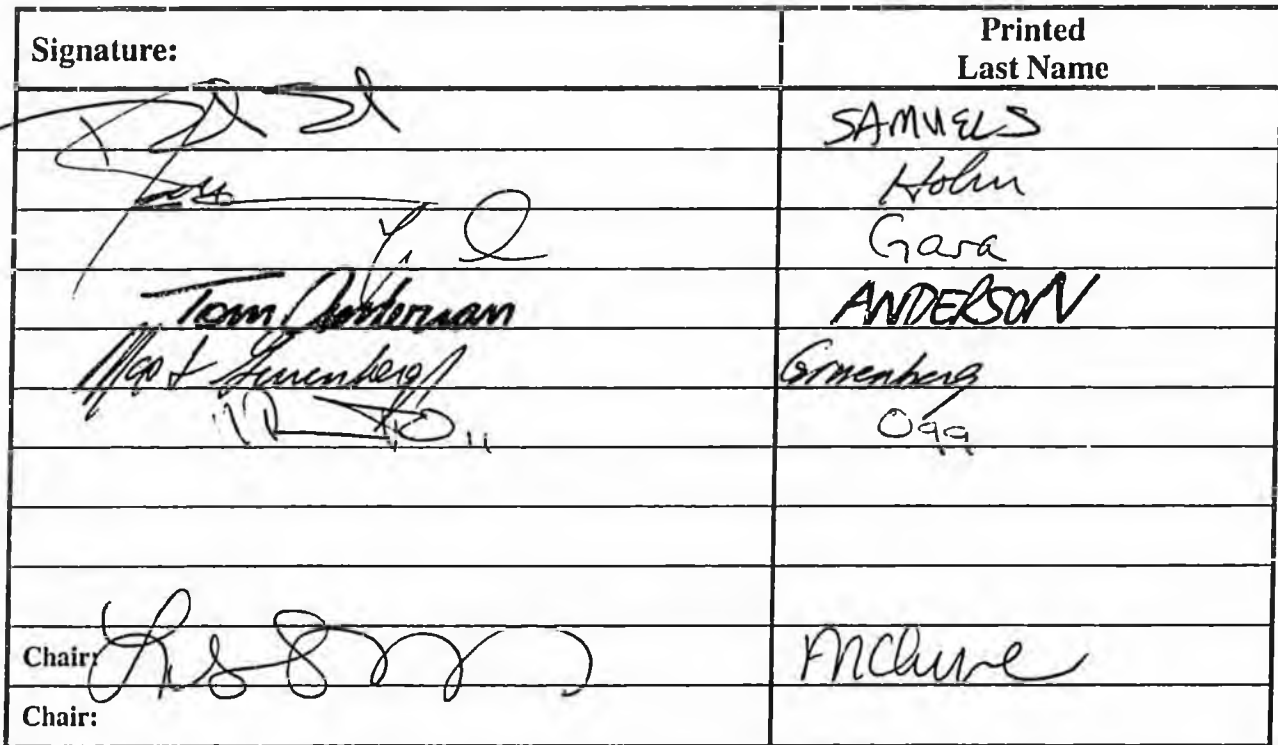 Signature: Printed Last Name
SAMUELS
Holm
Gara
Tom Anderson ANDERSON
Gruenberg Gruenberg
Ogg
Chair: McClure
Chair: